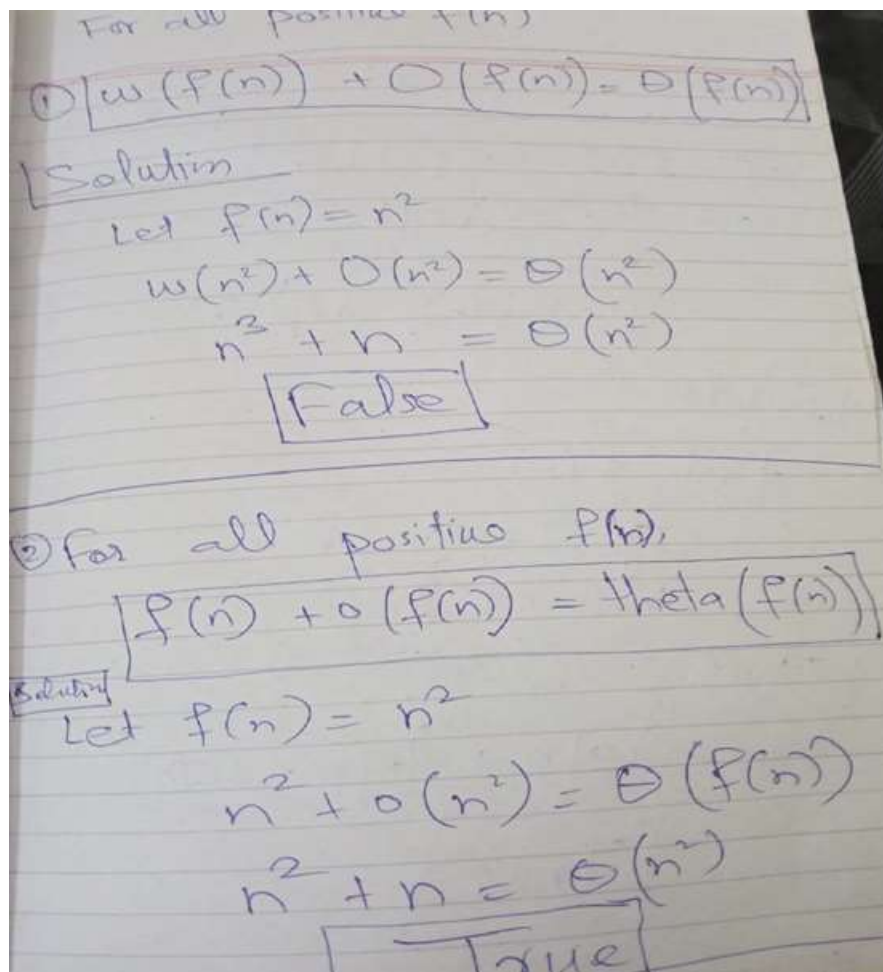 For all positive f(n)
① ω(f(n)) + O(f(n)) = Θ(f(n))
Solution
Let f(n) = n²
ω(n²) + O(n²) = Θ(n²)
n³ + n = Θ(n²)
False
② For all positive f(n),
f(n) + o(f(n)) = theta(f(n))
Solution
Let f(n) = n²
n² + o(n²) = Θ(f(n))
n² + n = Θ(n²)
True